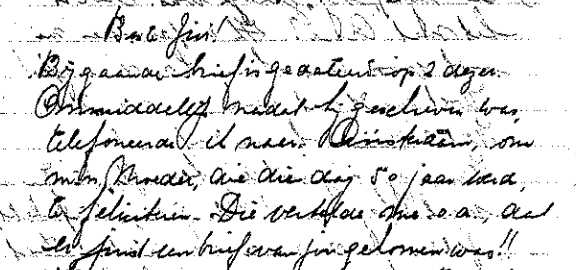 Beste Jim!
Bijgaande brief is gedateerd op 2 dezer.
Onmiddellijk nadat hij geschreven was,
telefoneerde ik naar Amsterdam, om
mijn Moeder, die die dag 50 jaar werd,
te feliciteren. Die vertelde me o.a., dat
er juist een brief van jou gekomen was!!